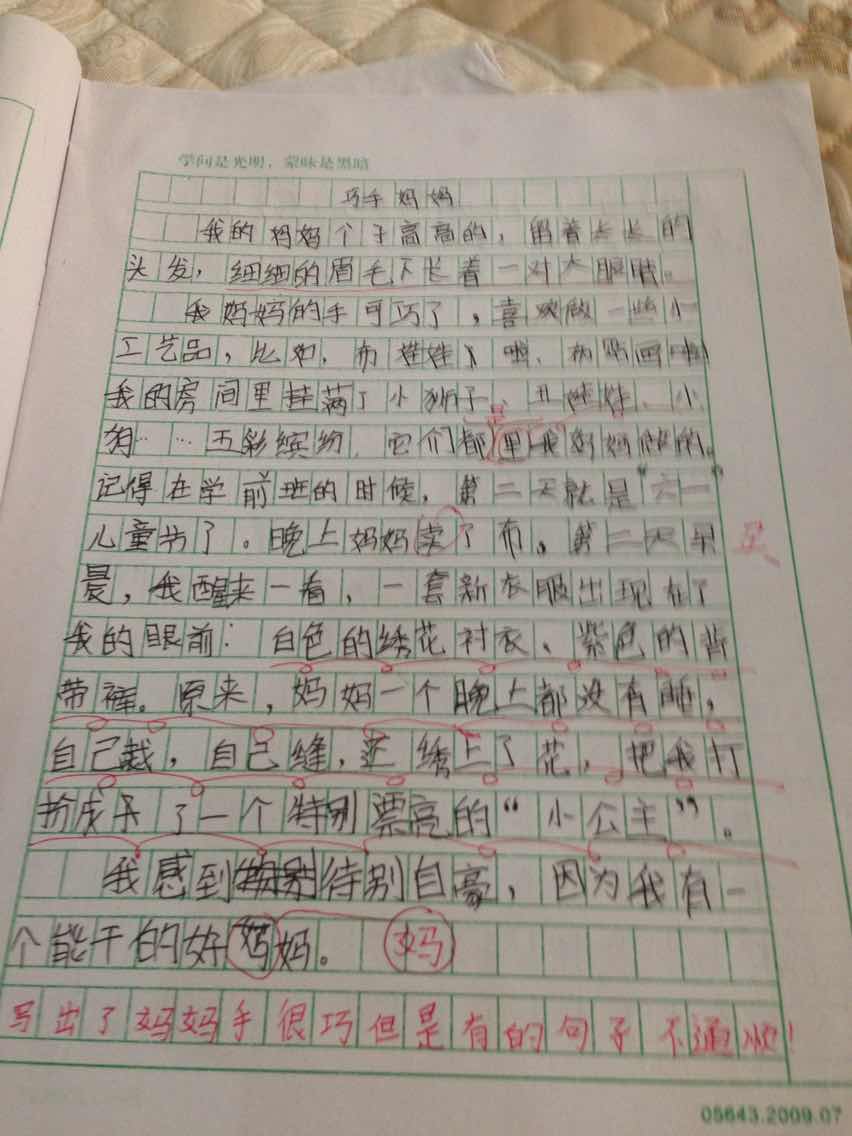 学问是光明，蒙昧是黑暗
巧手妈妈
我的妈妈个子高高的，留着长长的
头发，细细的眉毛下长着一对大眼睛。
我妈妈的手可巧了，喜欢做一些小
工艺品，比如，布娃娃啦、布贴画啦
我的房间里挂满了小狮子、娃娃、小
狗……五彩缤纷，它们都是我妈妈做的。
记得在学前班的时候，第二天就是“六一”
儿童节了。晚上妈妈买了布。第二天早
晨，我醒来一看，一套新衣服出现在了
我的眼前：白色的绣花衬衣、紫色的背
带裤。原来，妈妈一个晚上都没有睡，
自己裁，自己缝，还绣上了花，把我打
扮成了一个特别漂亮的“小公主”。
我感到特别自豪，因为我有一
个能干的好妈妈。 妈
写出了妈妈手很巧但是有的句子不通顺！
05643.2009.07